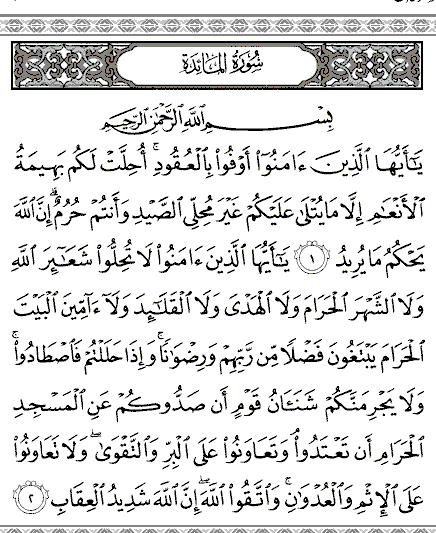 سُورَةُ المَائِدَةِ
بِسْمِ اللَّهِ الرَّحْمَٰنِ الرَّحِيمِ
يَٰٓأَيُّهَا ٱلَّذِينَ ءَامَنُوٓا۟ أَوْفُوا۟ بِٱلْعُقُودِ ۚ أُحِلَّتْ لَكُم بَهِيمَةُ
ٱلْأَنْعَٰمِ إِلَّا مَا يُتْلَىٰ عَلَيْكُمْ غَيْرَ مُحِلِّى ٱلصَّيْدِ وَأَنتُمْ حُرُمٌ ۗ إِنَّ ٱللَّهَ
يَحْكُمُ مَا يُرِيدُ ١ يَٰٓأَيُّهَا ٱلَّذِينَ ءَامَنُوا۟ لَا تُحِلُّوا۟ شَعَٰٓئِرَ ٱللَّهِ
وَلَا ٱلشَّهْرَ ٱلْحَرَامَ وَلَا ٱلْهَدْىَ وَلَا ٱلْقَلَٰٓئِدَ وَلَآ ءَآمِّينَ ٱلْبَيْتَ
ٱلْحَرَامَ يَبْتَغُونَ فَضْلًا مِّن رَّبِّهِمْ وَرِضْوَٰنًا ۚ وَإِذَا حَلَلْتُمْ فَٱصْطَادُوا۟ ۚ
وَلَا يَجْرِمَنَّكُمْ شَنَـَٔانُ قَوْمٍ أَن صَدُّوكُمْ عَنِ ٱلْمَسْجِدِ
ٱلْحَرَامِ أَن تَعْتَدُوا۟ ۘ وَتَعَاوَنُوا۟ عَلَى ٱلْبِرِّ وَٱلتَّقْوَىٰ ۖ وَلَا تَعَاوَنُوا۟
عَلَى ٱلْإِثْمِ وَٱلْعُدْوَٰنِ ۚ وَٱتَّقُوا۟ ٱللَّهَ ۖ إِنَّ ٱللَّهَ شَدِيدُ ٱلْعِقَابِ ٢